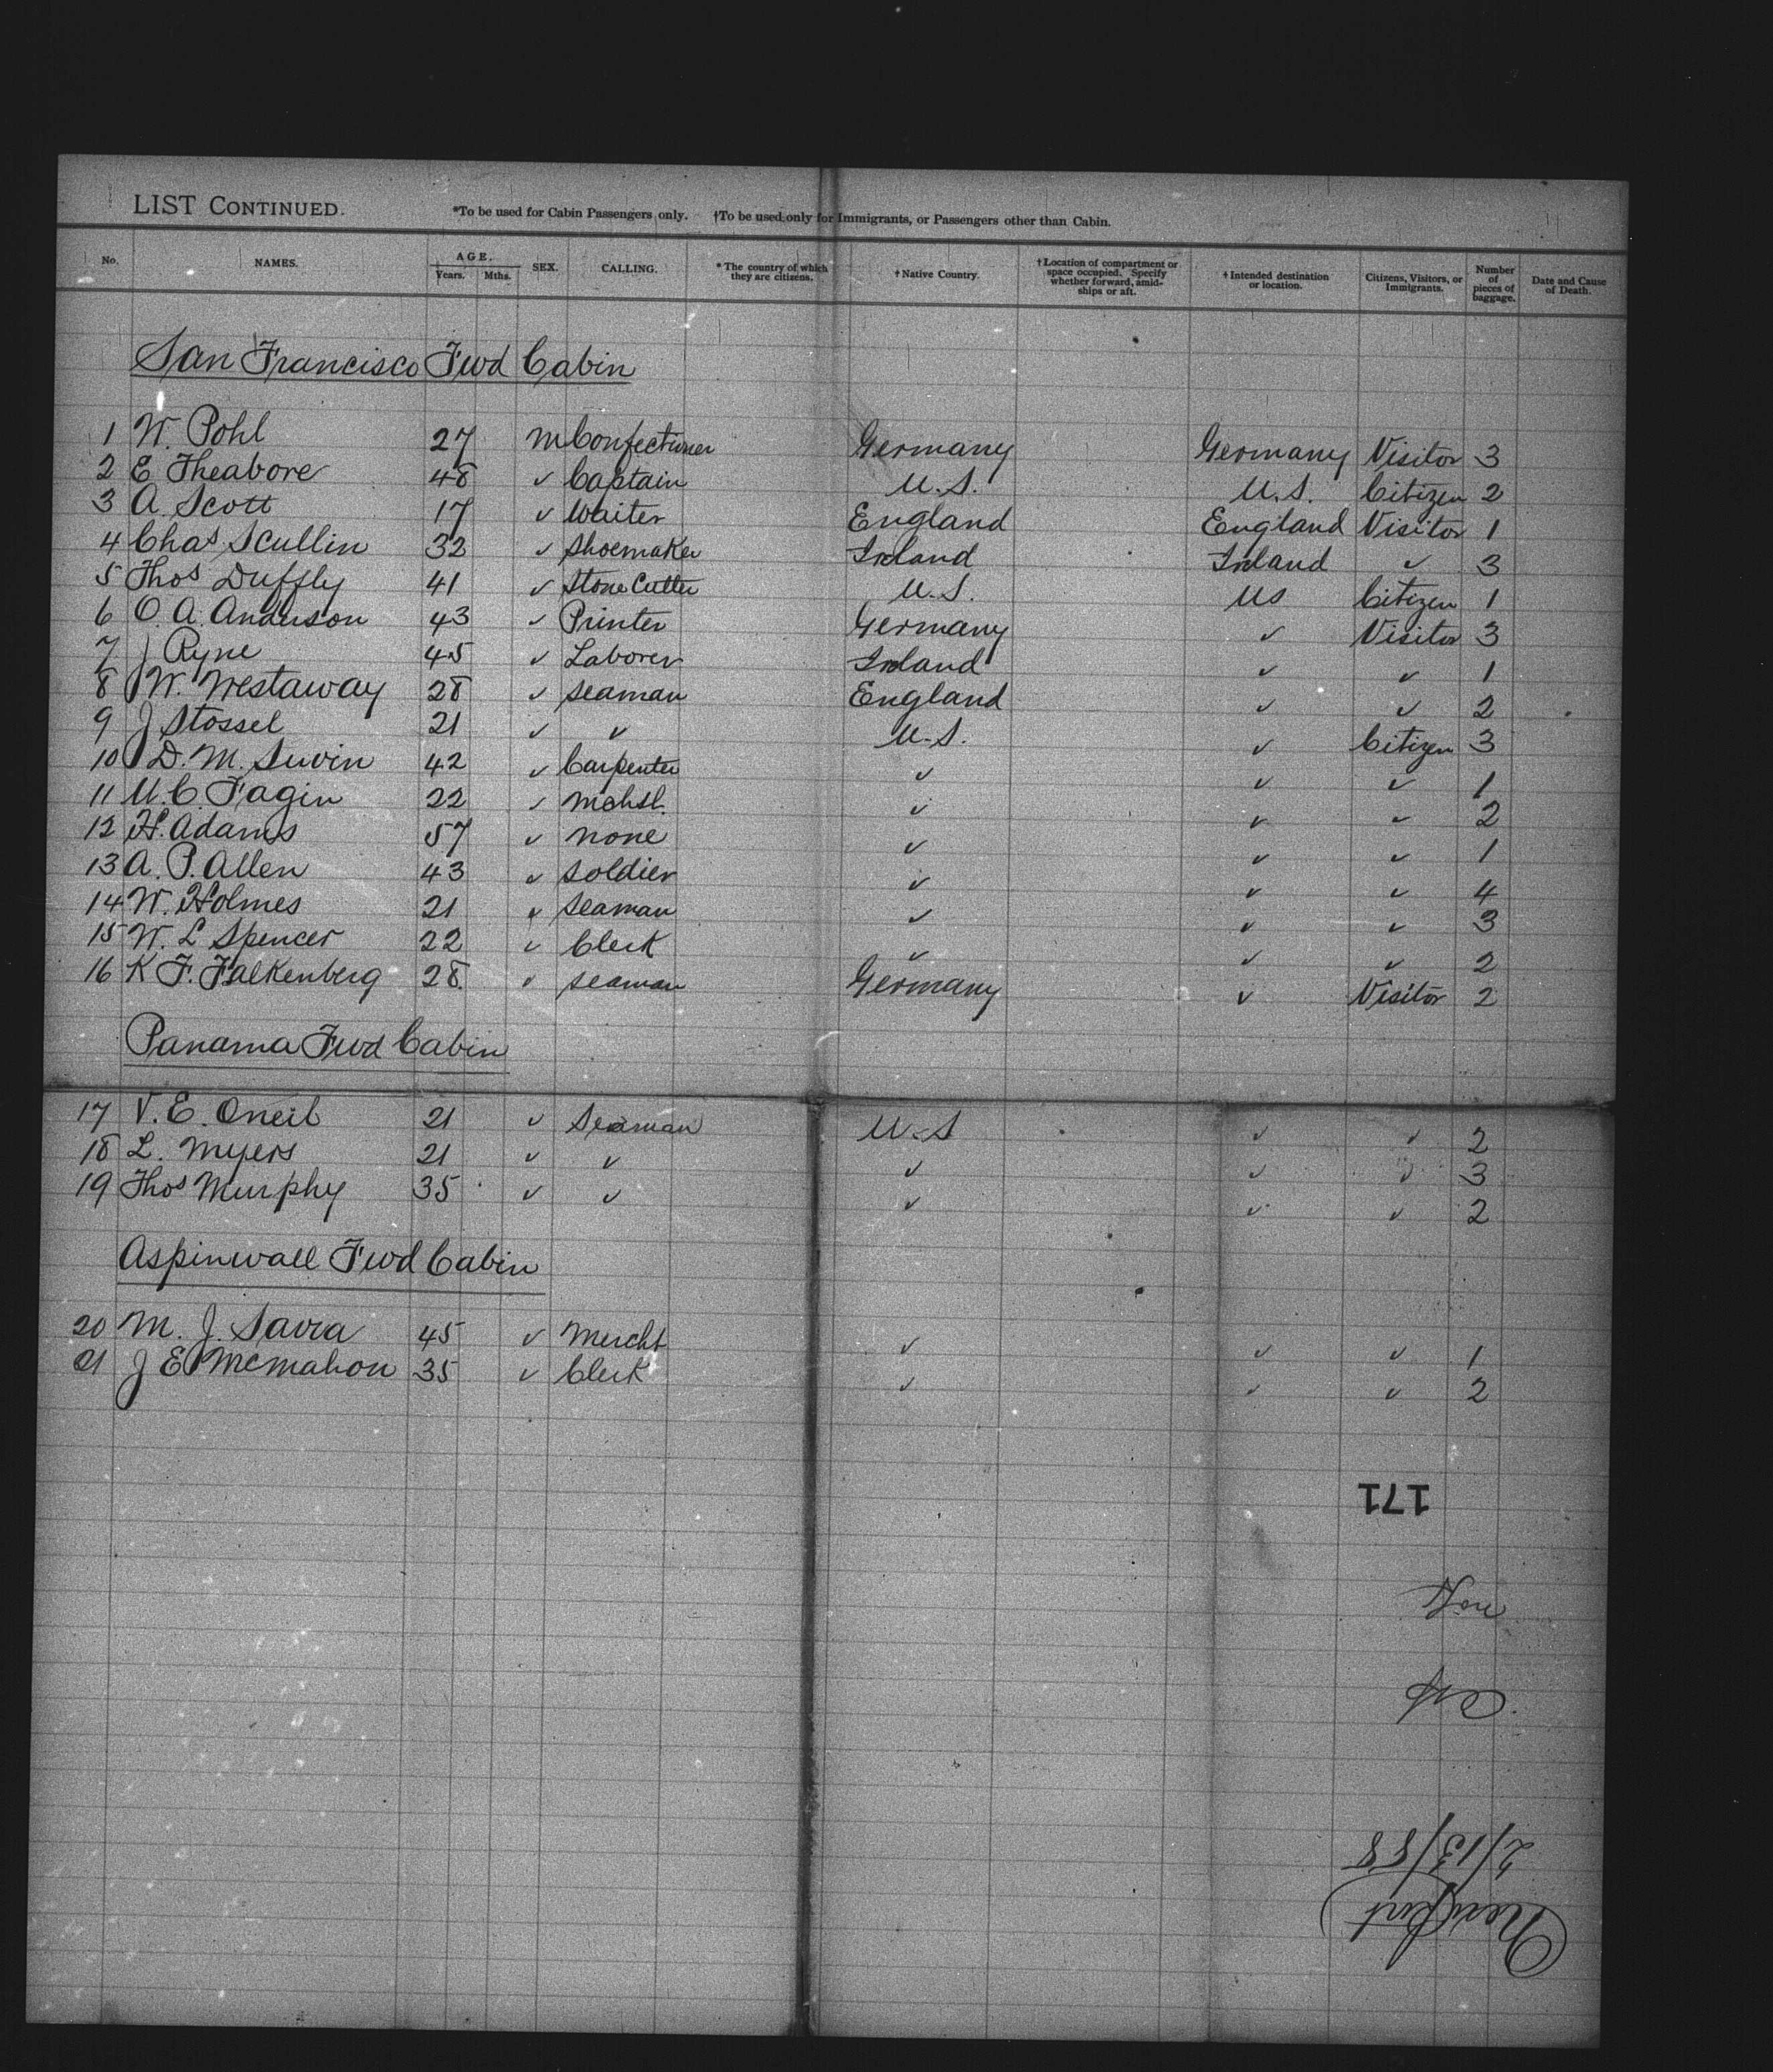 LIST CONTINUED. *To be used for Cabin Passengers only. †To be used only for Immigrants, or Passengers other than Cabin.
No. NAMES. AGE. Years. Mths. SEX. CALLING. *The country of which they are citizens. †Native Country. †Location of compartment or space occupied. Specify whether forward, amid-ships or aft. †Intended destination or location. Citizens, Visitors, or Immigrants. Number of pieces of baggage. Date and Cause of Death.
San Francisco Fwd Cabin
1 W. Pohl 27 M Confectioner Germany Germany Visitor 3
2 E Theabore 48 ✓ Captain U.S. U.S. Citizen 2
3 A. Scott 17 ✓ Waiter England England Visitor 1
4 Chas Scullin 32 ✓ Shoemaker Ireland Ireland ✓ 3
5 Thos Duffly 41 ✓ Stone Cutter U.S. US Citizen 1
6 O. A. Anderson 43 ✓ Printer Germany ✓ Visitor 3
7 J Ryne 45 ✓ Laborer Ireland ✓ ✓ 1
8 W. Westaway 28 ✓ Seaman England ✓ ✓ 2
9 J Stossel 21 ✓ ✓ U.S. ✓ Citizen 3
10 D. M. 42 ✓ Carpenter ✓ ✓ ✓ 1
11 M. C. Fagin 22 ✓ ✓ ✓ ✓ 2
12 H. Adams 57 ✓ None ✓ ✓ ✓ 1
13 A. P. Allen 43 ✓ Soldier ✓ ✓ ✓ 4
14 W. Holmes 21 ✓ Seaman ✓ ✓ ✓ 3
15 W. L Spencer 22 ✓ Clerk ✓ ✓ ✓ 2
16 K F. Falkenberg 28 ✓ Seaman Germany ✓ Visitor 2
Panama Fwd Cabin
17 V. E. Oneil 21 ✓ Seaman U.S ✓ ✓ 2
18 L. Myers 21 ✓ ✓ ✓ ✓ ✓ 3
19 Thos Murphy 35 ✓ ✓ ✓ ✓ ✓ 2
Aspinwall Fwd Cabin
20 M. J. 45 ✓ Mercht ✓ ✓ ✓ 1
21 J E McMahon 35 ✓ Clerk ✓ ✓ ✓ 2
171
2/13/88
Newport